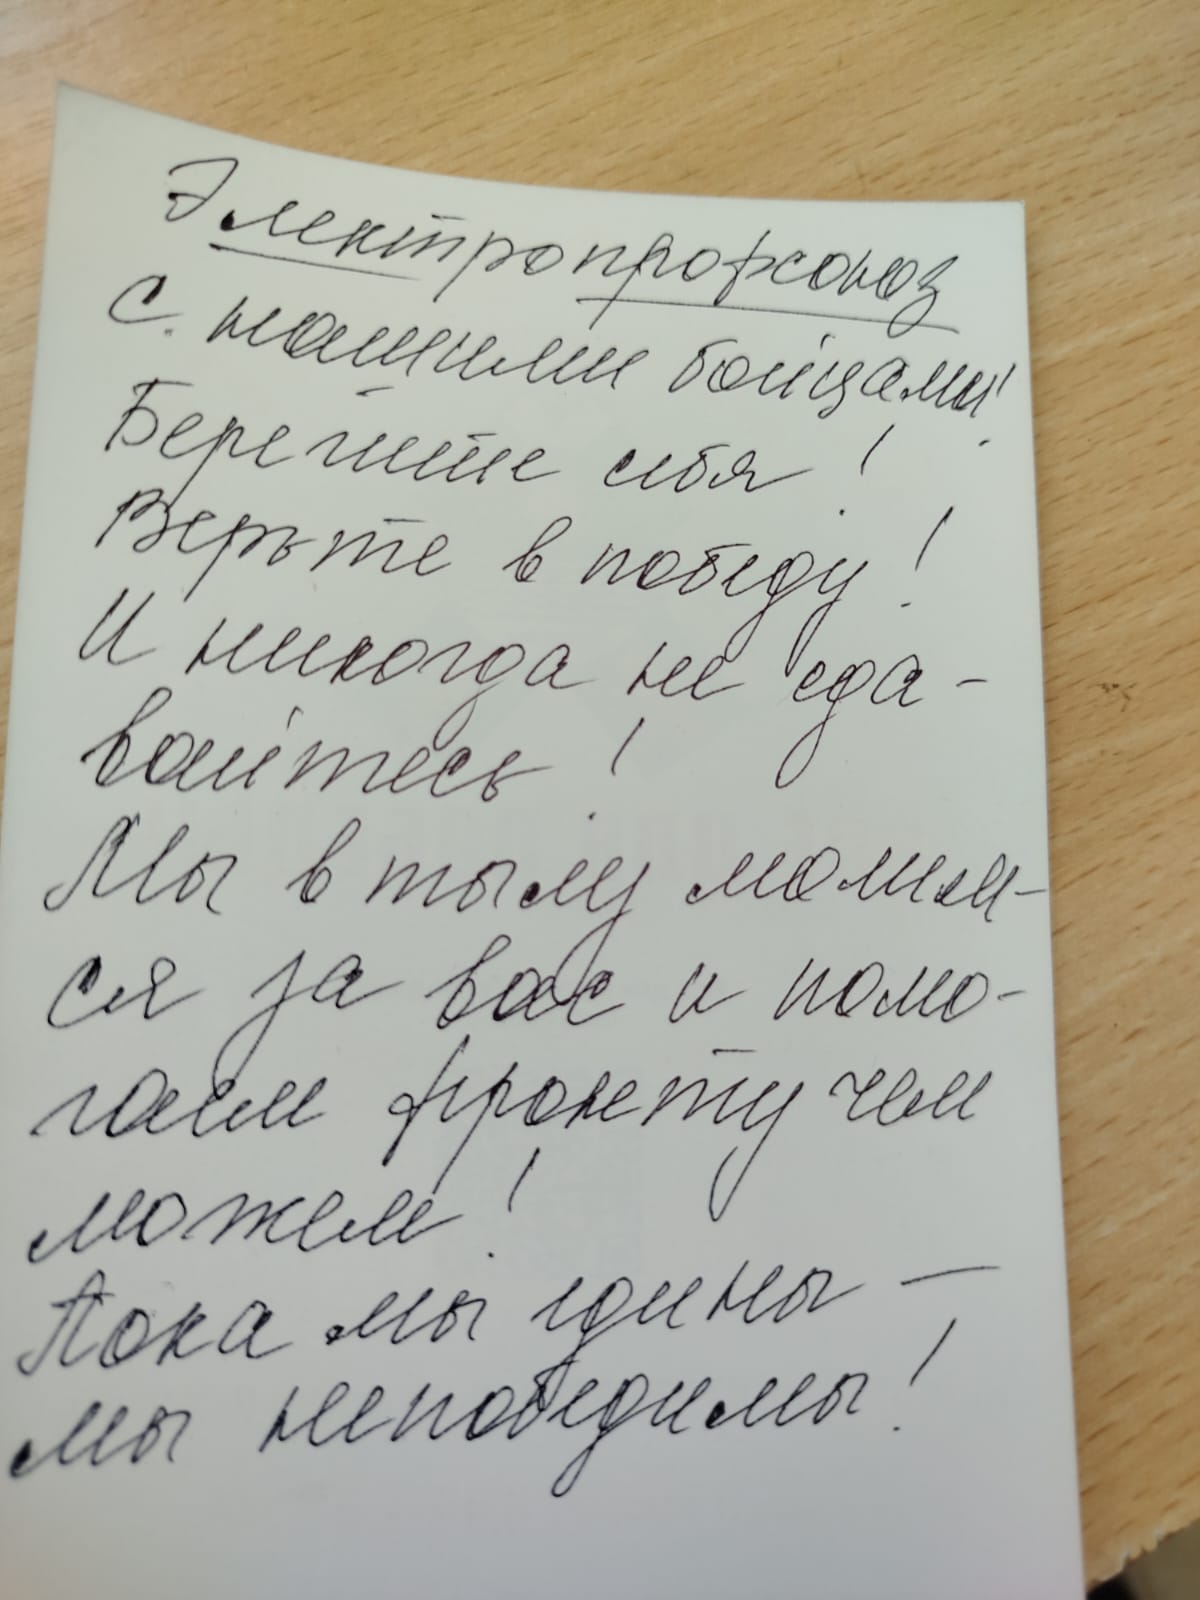 Электропрофсоюз
с нашими бойцами!
Берегите себя!
Верьте в победу!
И никогда не сда-
вайтесь!
Мы в тылу молим-
ся за вас и помо-
гаем фронту чем
можем!
Пока мы едины —
мы непобедимы!